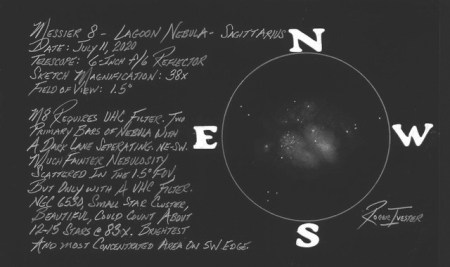 Messier 8 - Lagoon Nebula - Sagittarius
Date: July 11, 2020
Telescope: 6-Inch f/6 Reflector
Sketch Magnification: 38x
Field of View: 1.5°
M8 Requires UHC Filter. Two
Primary Bars of Nebula with
A Dark Lane Seperating NE-SW.
Much Fainter Nebulosity
Scattered In The 1.5° FOV,
But Only with A UHC Filter.
NGC 6530, Small Star Cluster,
Beautiful, Could Count About
12-15 Stars @ 83x. Brightest
And most Concentrated Area On SW Edge
N
E
W
S
Roger Ivester